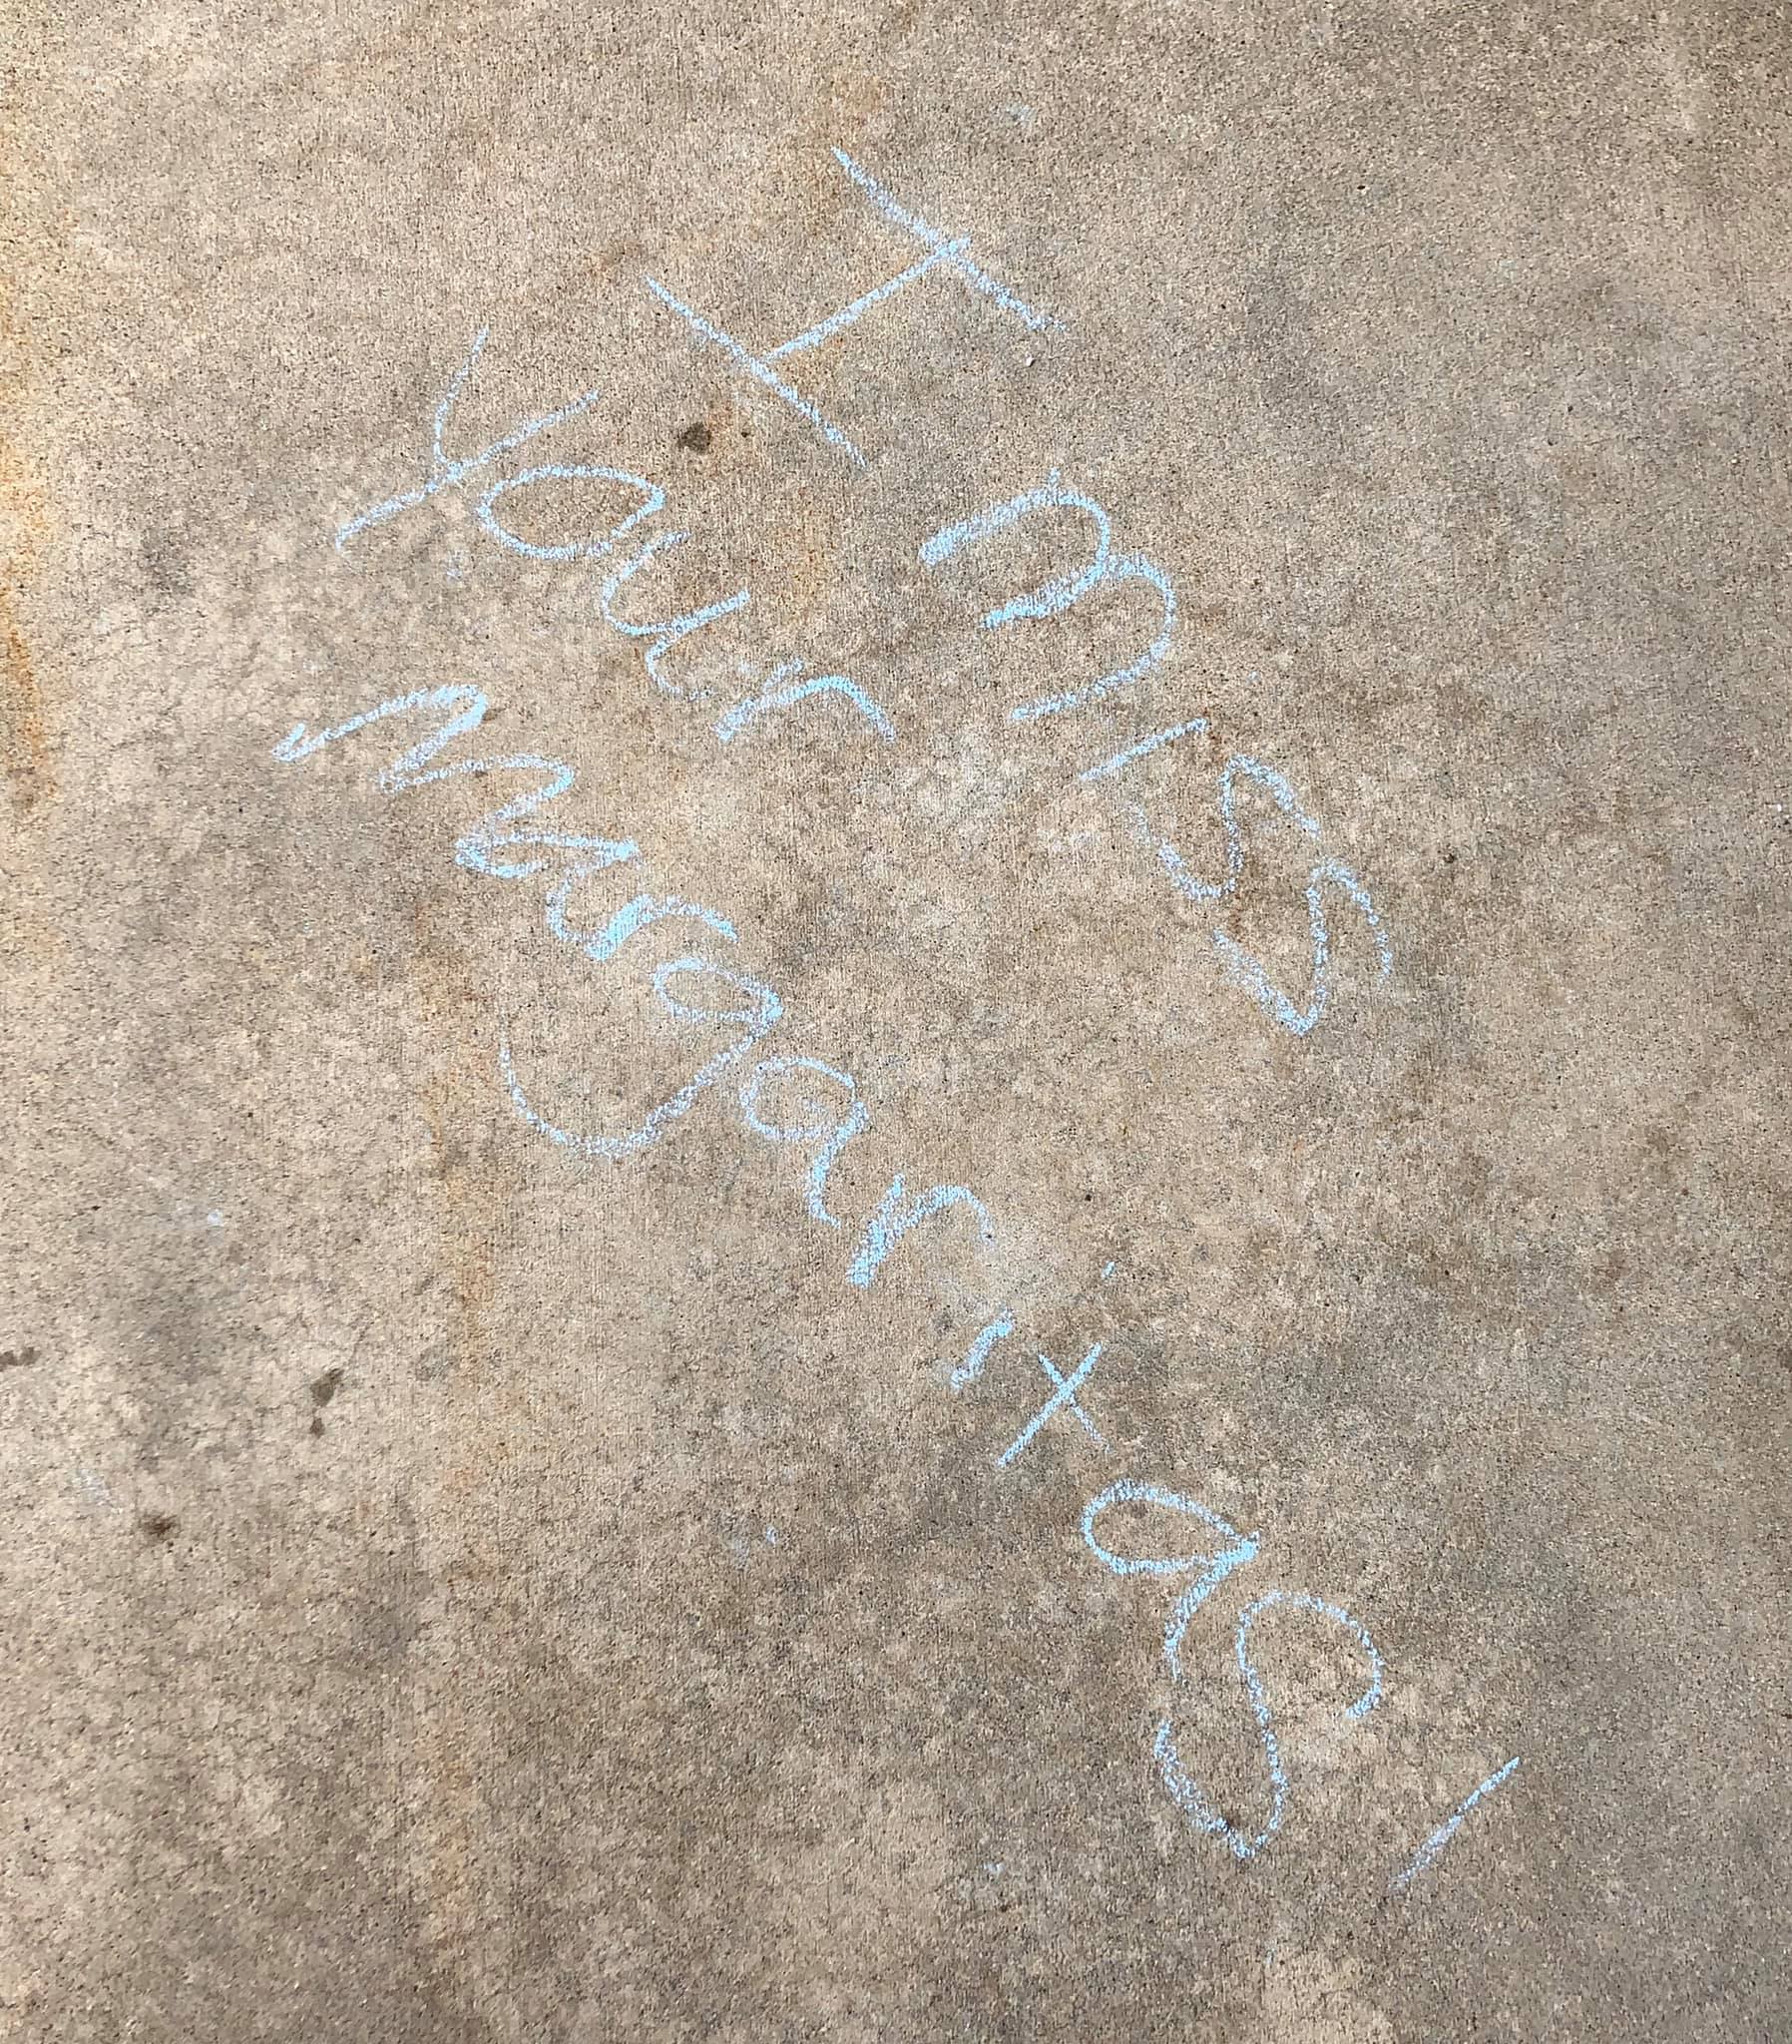 I miss
your
margaritas!